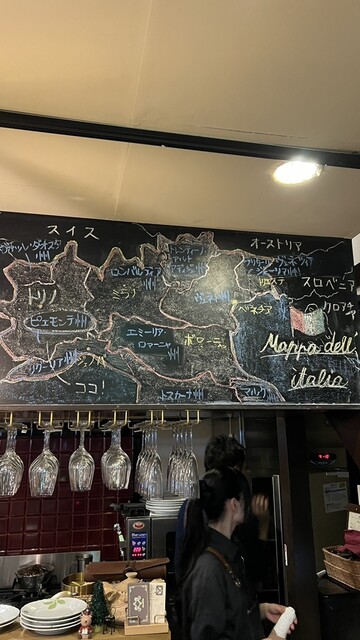 スイス
オーストリア
ヴァッレ・ダオスタ州
トレンティーノ
アルト
アディジェ州
フリウリ・ヴェネツィア
ジューリア州
ロンバルディア州
トリエステ
スロベニア
トリノ
ミラノ
ヴェネト州
ベネチア
クロアチア
ピエモンテ州
エミーリア・
ロマーニャ州
ボローニャ
Mappa dell'
italia
リグーリア州
ジェノバ
ココ!
トスカーナ州
マルケ